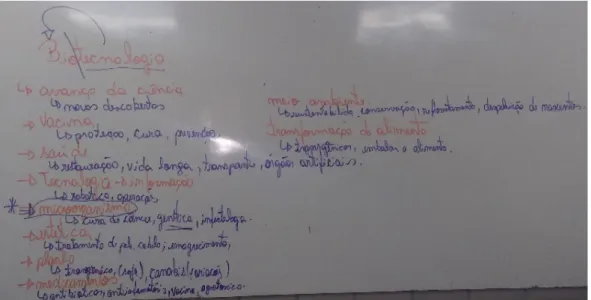 Biotecnologia
↳ avanço da ciência
↳ novas descobertas
→ Vacina,
↳ proteção, cura, prevenção.
→ Saúde
↳ restauração, vida longa, transplante, órgãos artificiais.
→ Tecnologia → informação
↳ robótica, operação,
* → microorganismo
↳ cura do câncer, genética, infectologia.
→ estética
↳ tratamento d pele, cabelo, emagrecimento,
→ planta
↳ transgênico, (soja),
→ medicamentos
↳ antibiótico, antiinflamatório, vacina,
meio ambiente.
↳ sustentabilidade, conservação, reflorestamento,
Transformação do alimento
↳ transgênicos, enlatar o alimento.